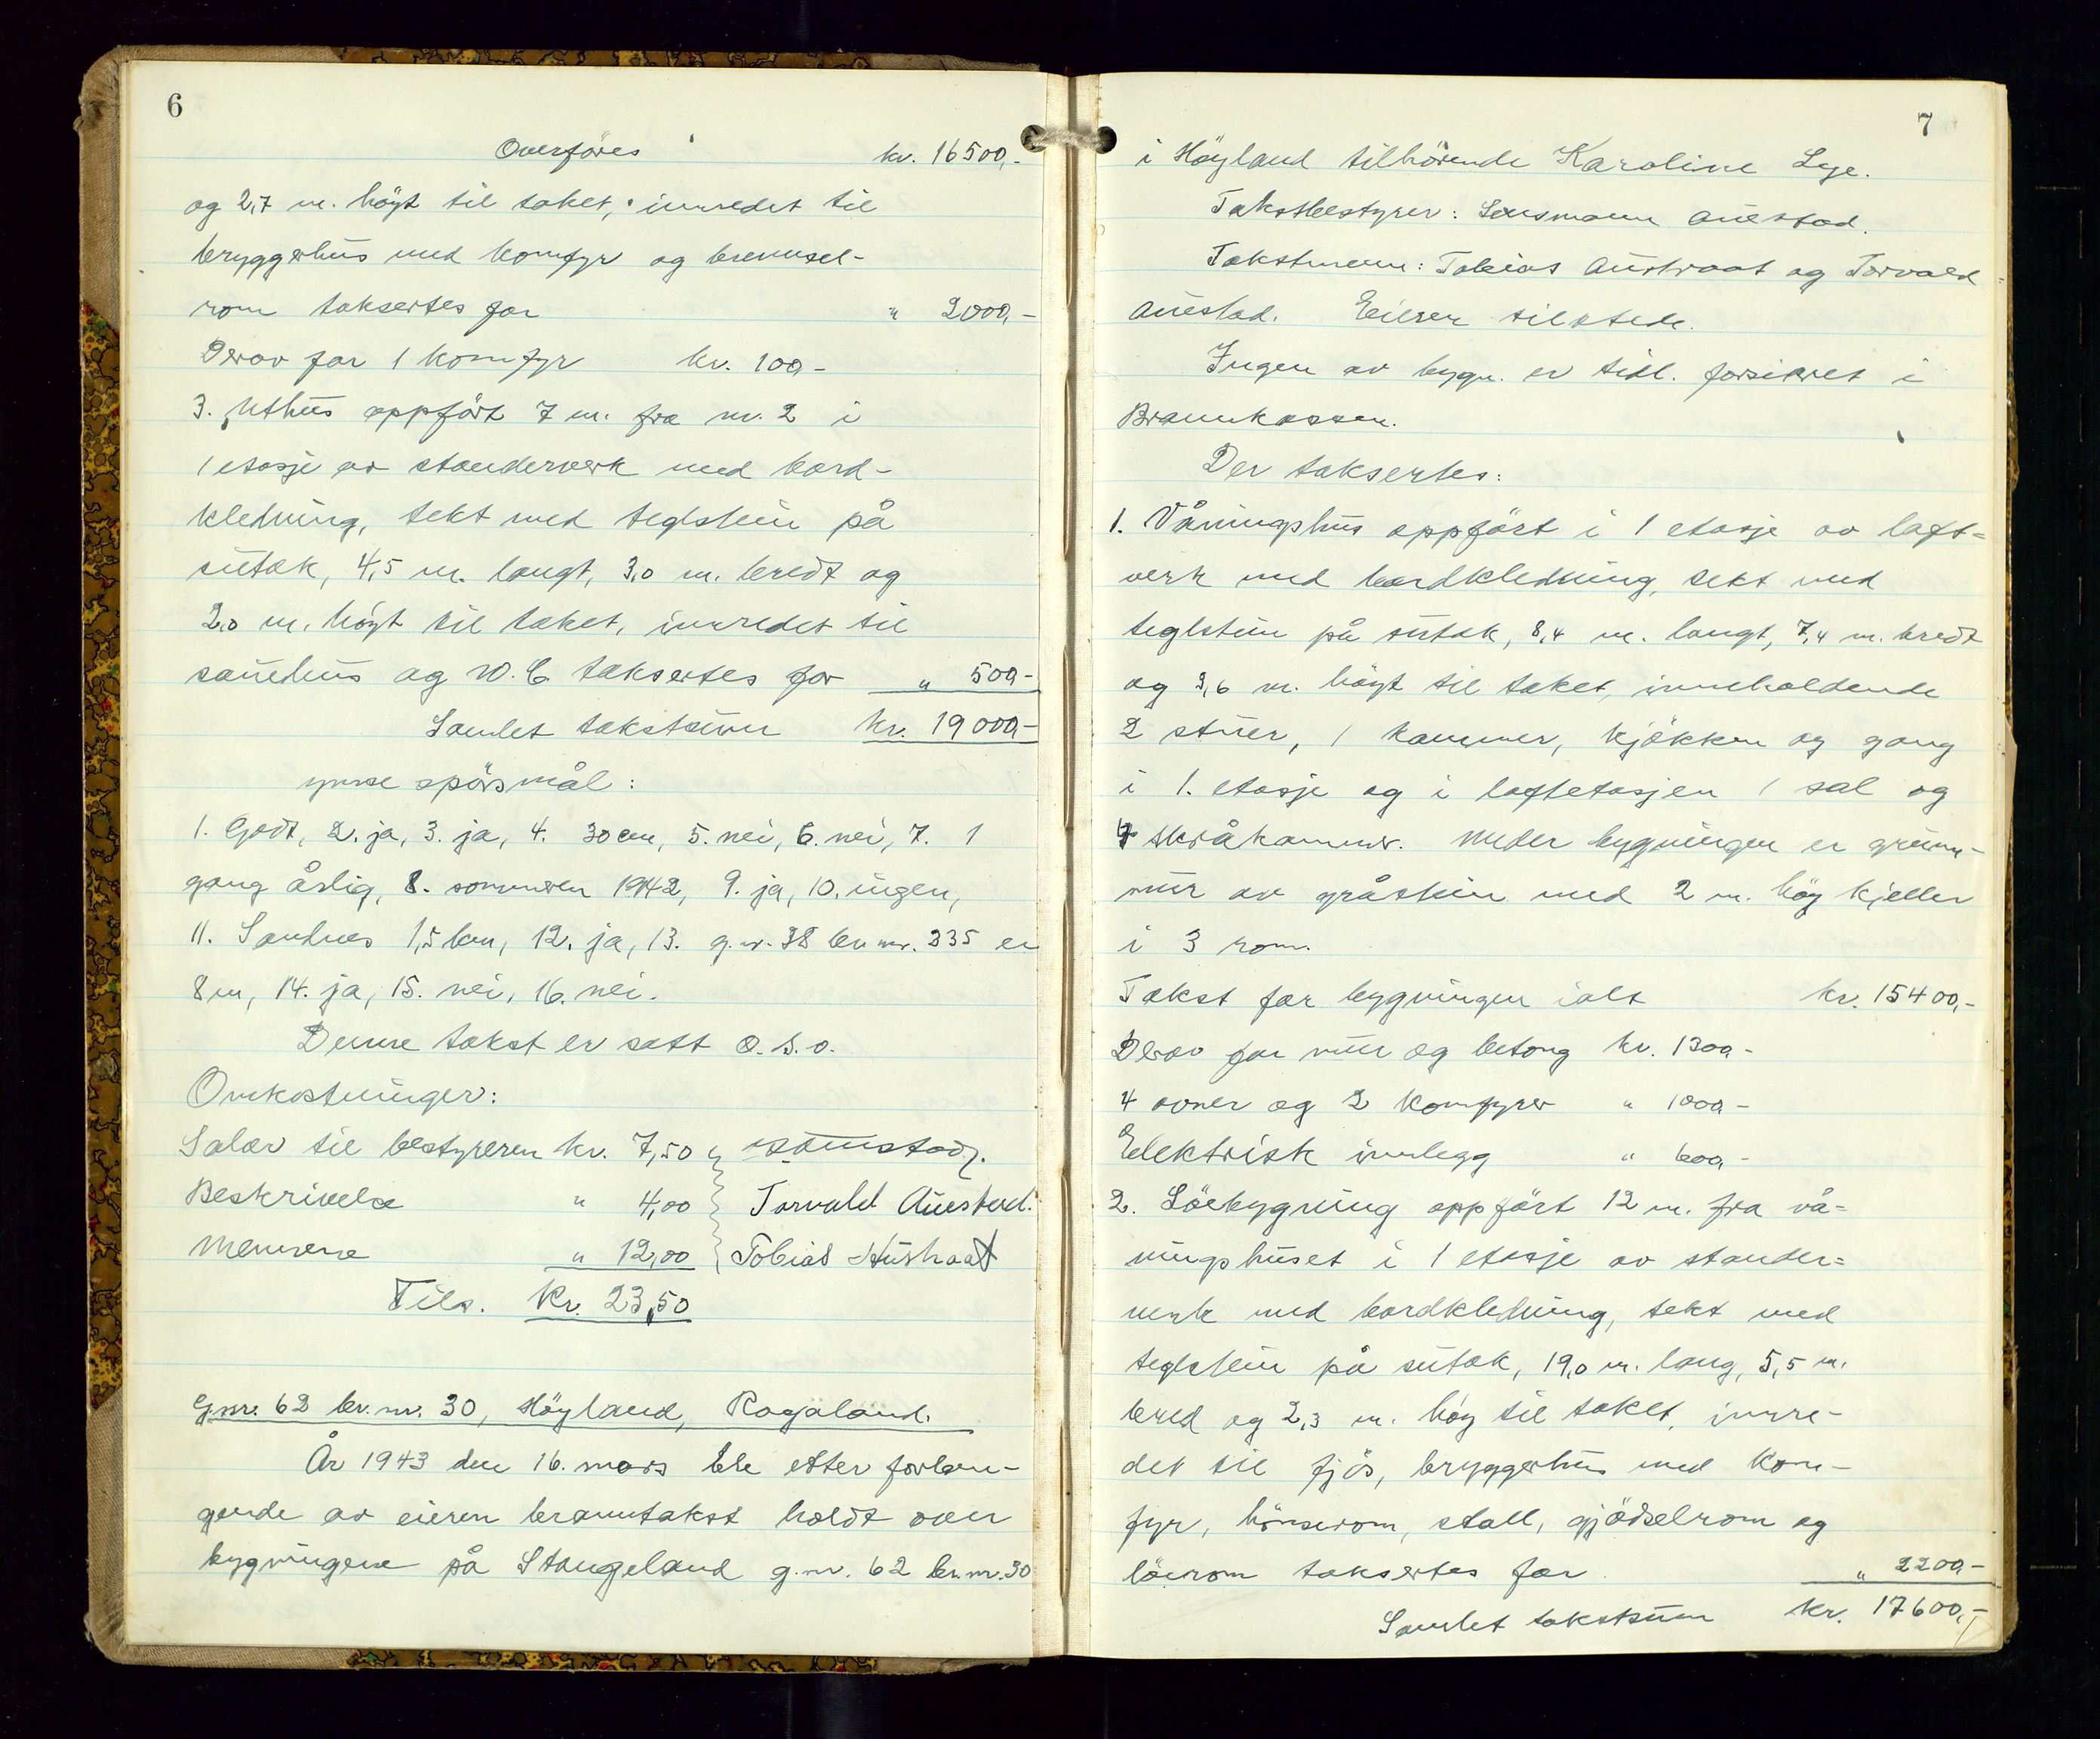 6
Overföres kr. 16500,-
og 2,7 m. höyt til taket, innredet til
bryggerhus med komfyr og brensel-
rom taksertes for " 2000,-
Derav for 1 komfyr kr. 100,-
3. Uthus oppfört 7 m. fra nr. 2 i
1 etasje av standerverk med bord-
kledning, tekt med teglstein på
sutak, 4,5 m. langt, 3,0 m. bredt og
2,0 m. höyt til taket, innredet til
sauehus og W.C. taksertes for " 500,-
Samlet takstsum kr. 19000,-
ymse spörsmål:
1. Godt, 2. ja, 3. ja, 4. 30 cm, 5. nei, 6. nei, 7. 1
gang årlig, 8. sommeren 1942, 9. ja, 10. ingen,
11. Sandnes 1,5 km, 12. ja, 13. g.nr. 38 br.nr. 335 er
8 m, 14. ja, 15. nei, 16. nei.
Denne takst er satt O.S.O.
Omkostninger:
Salær til bestyreren kr. 7,50
Beskrivelse " 4,00 Torvald Auestad.
Mennene " 12,00 Tobias Austraat
Tils. Kr. 23,50
G.nr. 62 br.nr. 30, Höyland, Rogaland.
År 1943 den 16. mars ble etter forlan-
gende av eieren branntakst holdt over
bygningene på Stangeland g.nr. 62 br.nr. 30
7
i Höyland tilhörende Karoline Lye.
Takstbestyrer: Lensmann Auestad.
Takstmenn: Tobias Austraat og Torvald
Auestad. Eieren tilstede.
Ingen av bygn. er tidl. forsikret i
Brannkassen.
Der taksertes:
1. Våningshus oppfört i 1 etasje av laft-
verk med bordkledning, tekt med
teglstein på sutak, 8,4 m. langt, 7,4 m. bredt
og 3,6 m. höyt til taket, inneholdende
2 stuer, 1 kammer, kjökken og gang
i 1. etasje og i loftetasjen 1 sal og
4 skråkammer. Under bygningen er grunn-
mur av gråstein med 2 m. höy kjeller
i 3 rom.
Takst for bygningen ialt kr. 15400,-
Derav for mur og betong kr. 1300,-
4 ovner og 2 komfyrer " 1000,-
Elektrisk innlegg " 600,-
2. Löebygning oppfört 12 m. fra vå-
ningshuset i 1 etasje av stander-
verk med bordkledning, tekt med
teglstein på sutak, 19,0 m. lang, 5,5 m.
bred og 2,3 m. höy til taket, innre-
det til fjös, bryggerhus med kom-
fyr, hönserom, stall, gjödselrom og
löerom taksertes for " 2200,-
Samlet takstsum kr. 17600,-